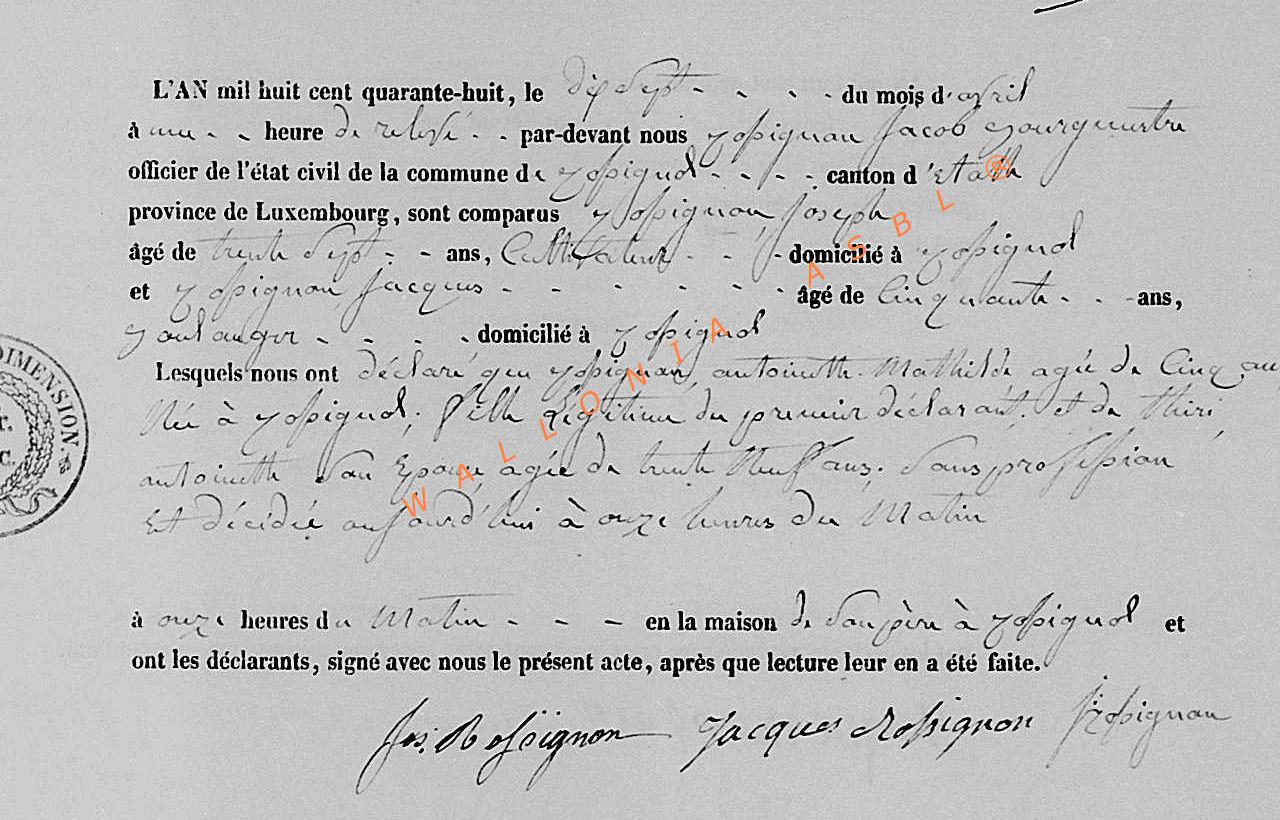 L'AN mil huit cent quarante-huit, le dix Sept - - - - du mois d'avril
à une - - heure de relevé - - par-devant nous Rossignon Jacob Bourguestre
officier de l'état civil de la commune de Rossignol - - - - canton d'Etalle
province de Luxembourg, sont comparus Rossignon Joseph
âgé de trente Sept - - ans, Cultivateur - - - domicilié à Rossignol
et Rossignon Jacques - - - - - - - âgé de Cinquante - - - ans,
Boulanger - - - - domicilié à Rossignol
Lesquels nous ont déclaré que Rossignon antoinette Mathilde agée de Cinq ans
Née à Rossignol, fille Légitime du premier déclarant, et de Thiri
antoinette Son Epouse agée de trente Neuf ans. Sans profession
Et décidée aujourd'hui à onze heures du Matin
à onze heures du Matin - - - en la maison de Son père à Rossignol et
ont les déclarants, signé avec nous le présent acte, après que lecture leur en a été faite.
Jos. Rossignon Jacques Rossignon J Rossignon
DIMENSION.
WALLONIA ASBL ®